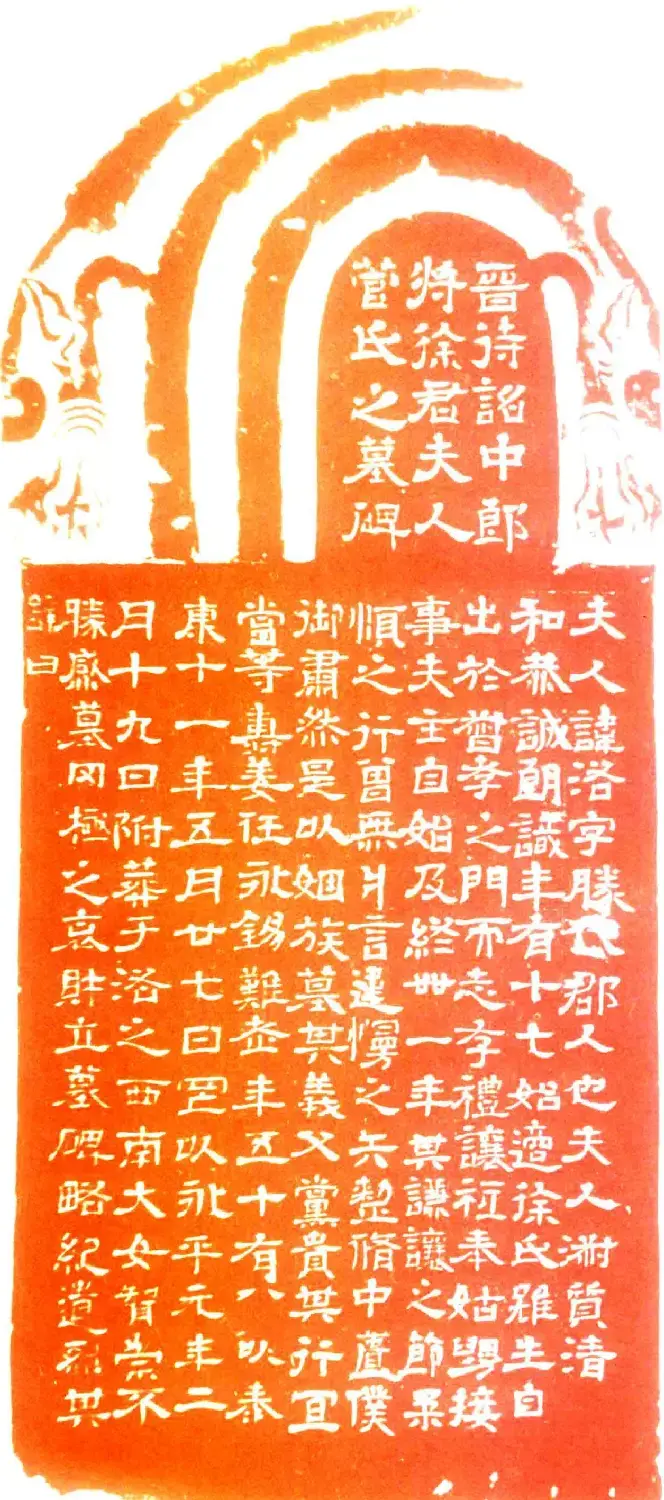 晉待詔中郎
將徐君夫人
菅氏之墓碑
夫人諱洛字勝代郡人也夫人淑質清
和恭誠朗識年有十七始適徐氏雖生自
出於督孝之門而志存禮讓祗奉姑舅接
事夫主自始及終卌一年其謙讓之節柔
順之行曾無片言違慢之失整脩中匱僕
御肅然是以姻族慕其義父黨貴其行宜
當等壽姜任永錫難老年五十有八以泰
康十一年五月廿七日罡以永平元年二
月十九日附葬于洛之西南大女智崇不
勝感慕罔極之哀財立墓碑略紀遺烈其
詞曰